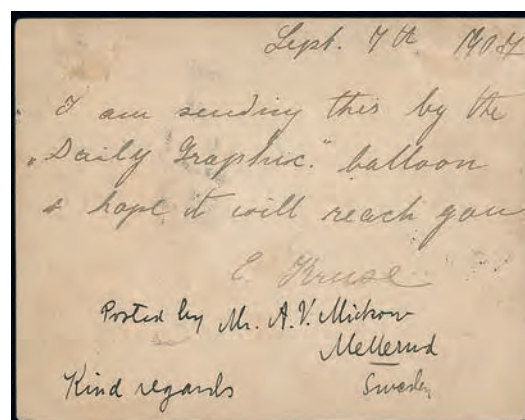 Sept. 7th 1907
I am sending this by the
„Daily Graphic." balloon
& hope it will reach you
E. Kruse
Posted by Mr. A.V. Mickow
Mellerud
Sweden
Kind regards